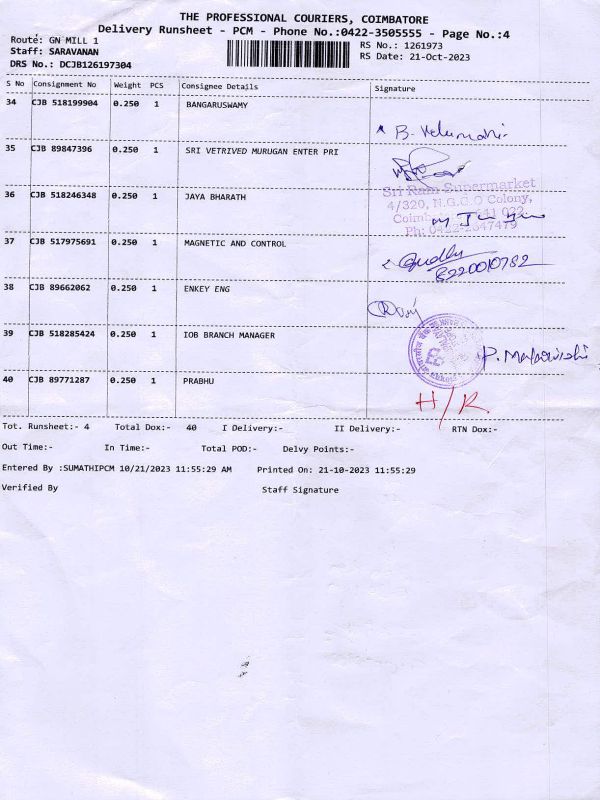 THE PROFESSIONAL COURIERS, COIMBATORE
Delivery Runsheet - PCM - Phone No.:0422-3505555 - Page No.:4
Route: GN MILL 1
RS No.: 1261973
Staff: SARAVANAN
RS Date: 21-Oct-2023
DRS No.: DCJB126197304
S No Consignment No Weight PCS Consignee Details Signature
34 CJB 518199904 0.250 1 BANGARUSWAMY
35 CJB 89847396 0.250 1 SRI VETRIVED MURUGAN ENTER PRI
36 CJB 518246348 0.250 1 JAYA BHARATH
Sri Ram Supermarket
4/320, N.G.G.O Colony,
37 CJB 517975691 0.250 1 MAGNETIC AND CONTROL
8220010782
38 CJB 89662062 0.250 1 ENKEY ENG
39 CJB 518285424 0.250 1 IOB BRANCH MANAGER
40 CJB 89771287 0.250 1 PRABHU
H/R.
Tot. Runsheet:- 4 Total Dox:- 40 I Delivery:- II Delivery:- RTN Dox:-
Out Time:- In Time:- Total POD:- Delvy Points:-
Entered By :SUMATHIPCM 10/21/2023 11:55:29 AM Printed On: 21-10-2023 11:55:29
Verified By Staff Signature